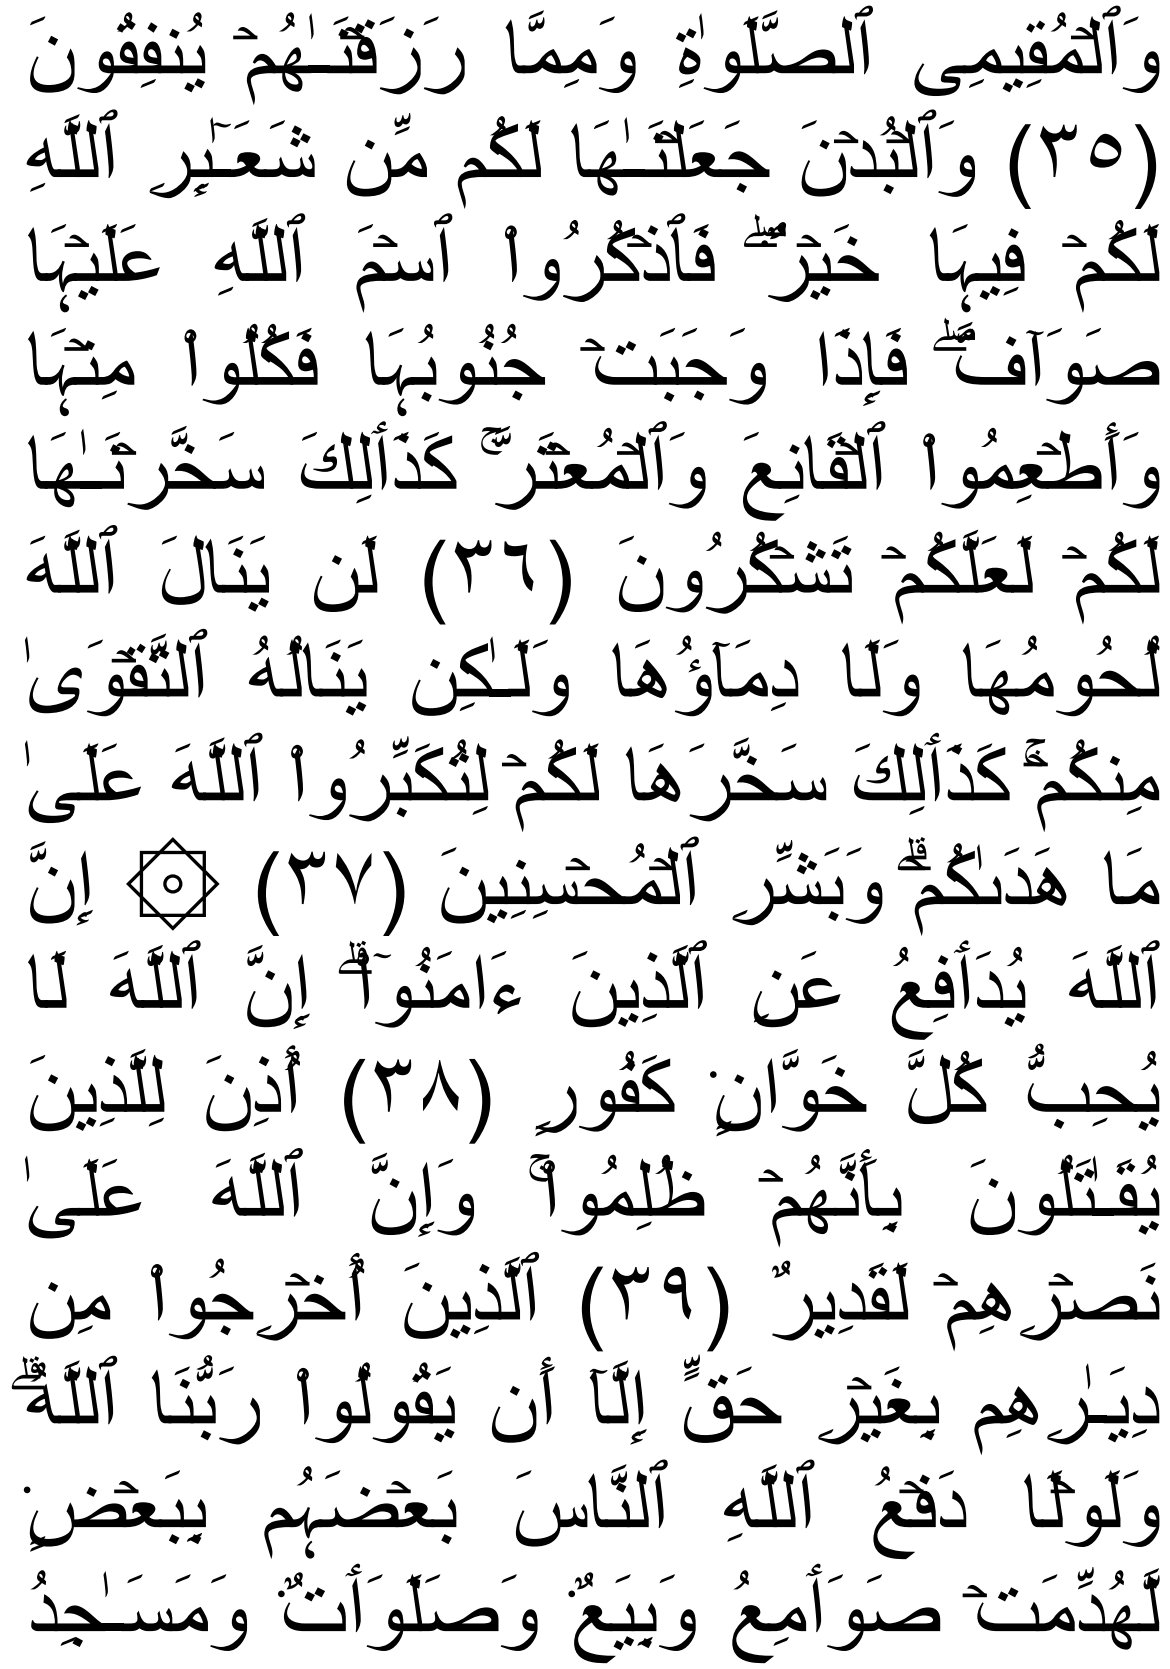 وَٱلۡمُقِيمِى ٱلصَّلَوٰةِ وَمِمَّا رَزَقۡنَـٰهُمۡ يُنفِقُونَ
(٣٥) وَٱلۡبُدۡنَ جَعَلۡنَـٰهَا لَكُم مِّن شَعَـٰٓٮِٕرِ ٱللَّهِ
لَكُمۡ فِيہَا خَيۡرٌ۬ۖ فَٱذۡكُرُواْ ٱسۡمَ ٱللَّهِ عَلَيۡہَا
صَوَآفَّۖ فَإِذَا وَجَبَتۡ جُنُوبُہَا فَكُلُواْ مِنۡہَا
وَأَطۡعِمُواْ ٱلۡقَانِعَ وَٱلۡمُعۡتَرَّۚ كَذَٲلِكَ سَخَّرۡنَـٰهَا
لَكُمۡ لَعَلَّكُمۡ تَشۡكُرُونَ (٣٦) لَن يَنَالَ ٱللَّهَ
لُحُومُهَا وَلَا دِمَآؤُهَا وَلَـٰكِن يَنَالُهُ ٱلتَّقۡوَىٰ
مِنكُمۡۚ كَذَٲلِكَ سَخَّرَهَا لَكُمۡ لِتُكَبِّرُواْ ٱللَّهَ عَلَىٰ
مَا هَدَٮٰكُمۡۗ وَبَشِّرِ ٱلۡمُحۡسِنِينَ (٣٧) ۞ إِنَّ
ٱللَّهَ يُدَٲفِعُ عَنِ ٱلَّذِينَ ءَامَنُوٓاْۗ إِنَّ ٱللَّهَ لَا
يُحِبُّ كُلَّ خَوَّانٍ۬ كَفُورٍ (٣٨) أُذِنَ لِلَّذِينَ
يُقَـٰتَلُونَ بِأَنَّهُمۡ ظُلِمُواْۚ وَإِنَّ ٱللَّهَ عَلَىٰ
نَصۡرِهِمۡ لَقَدِيرٌ (٣٩) ٱلَّذِينَ أُخۡرِجُواْ مِن
دِيَـٰرِهِم بِغَيۡرِ حَقٍّ إِلَّآ أَن يَقُولُواْ رَبُّنَا ٱللَّهُۗ
وَلَوۡلَا دَفۡعُ ٱللَّهِ ٱلنَّاسَ بَعۡضَہُم بِبَعۡضٍ۬
لَّهُدِّمَتۡ صَوَٲمِعُ وَبِيَعٌ۬ وَصَلَوَٲتٌ۬ وَمَسَـٰجِدُ